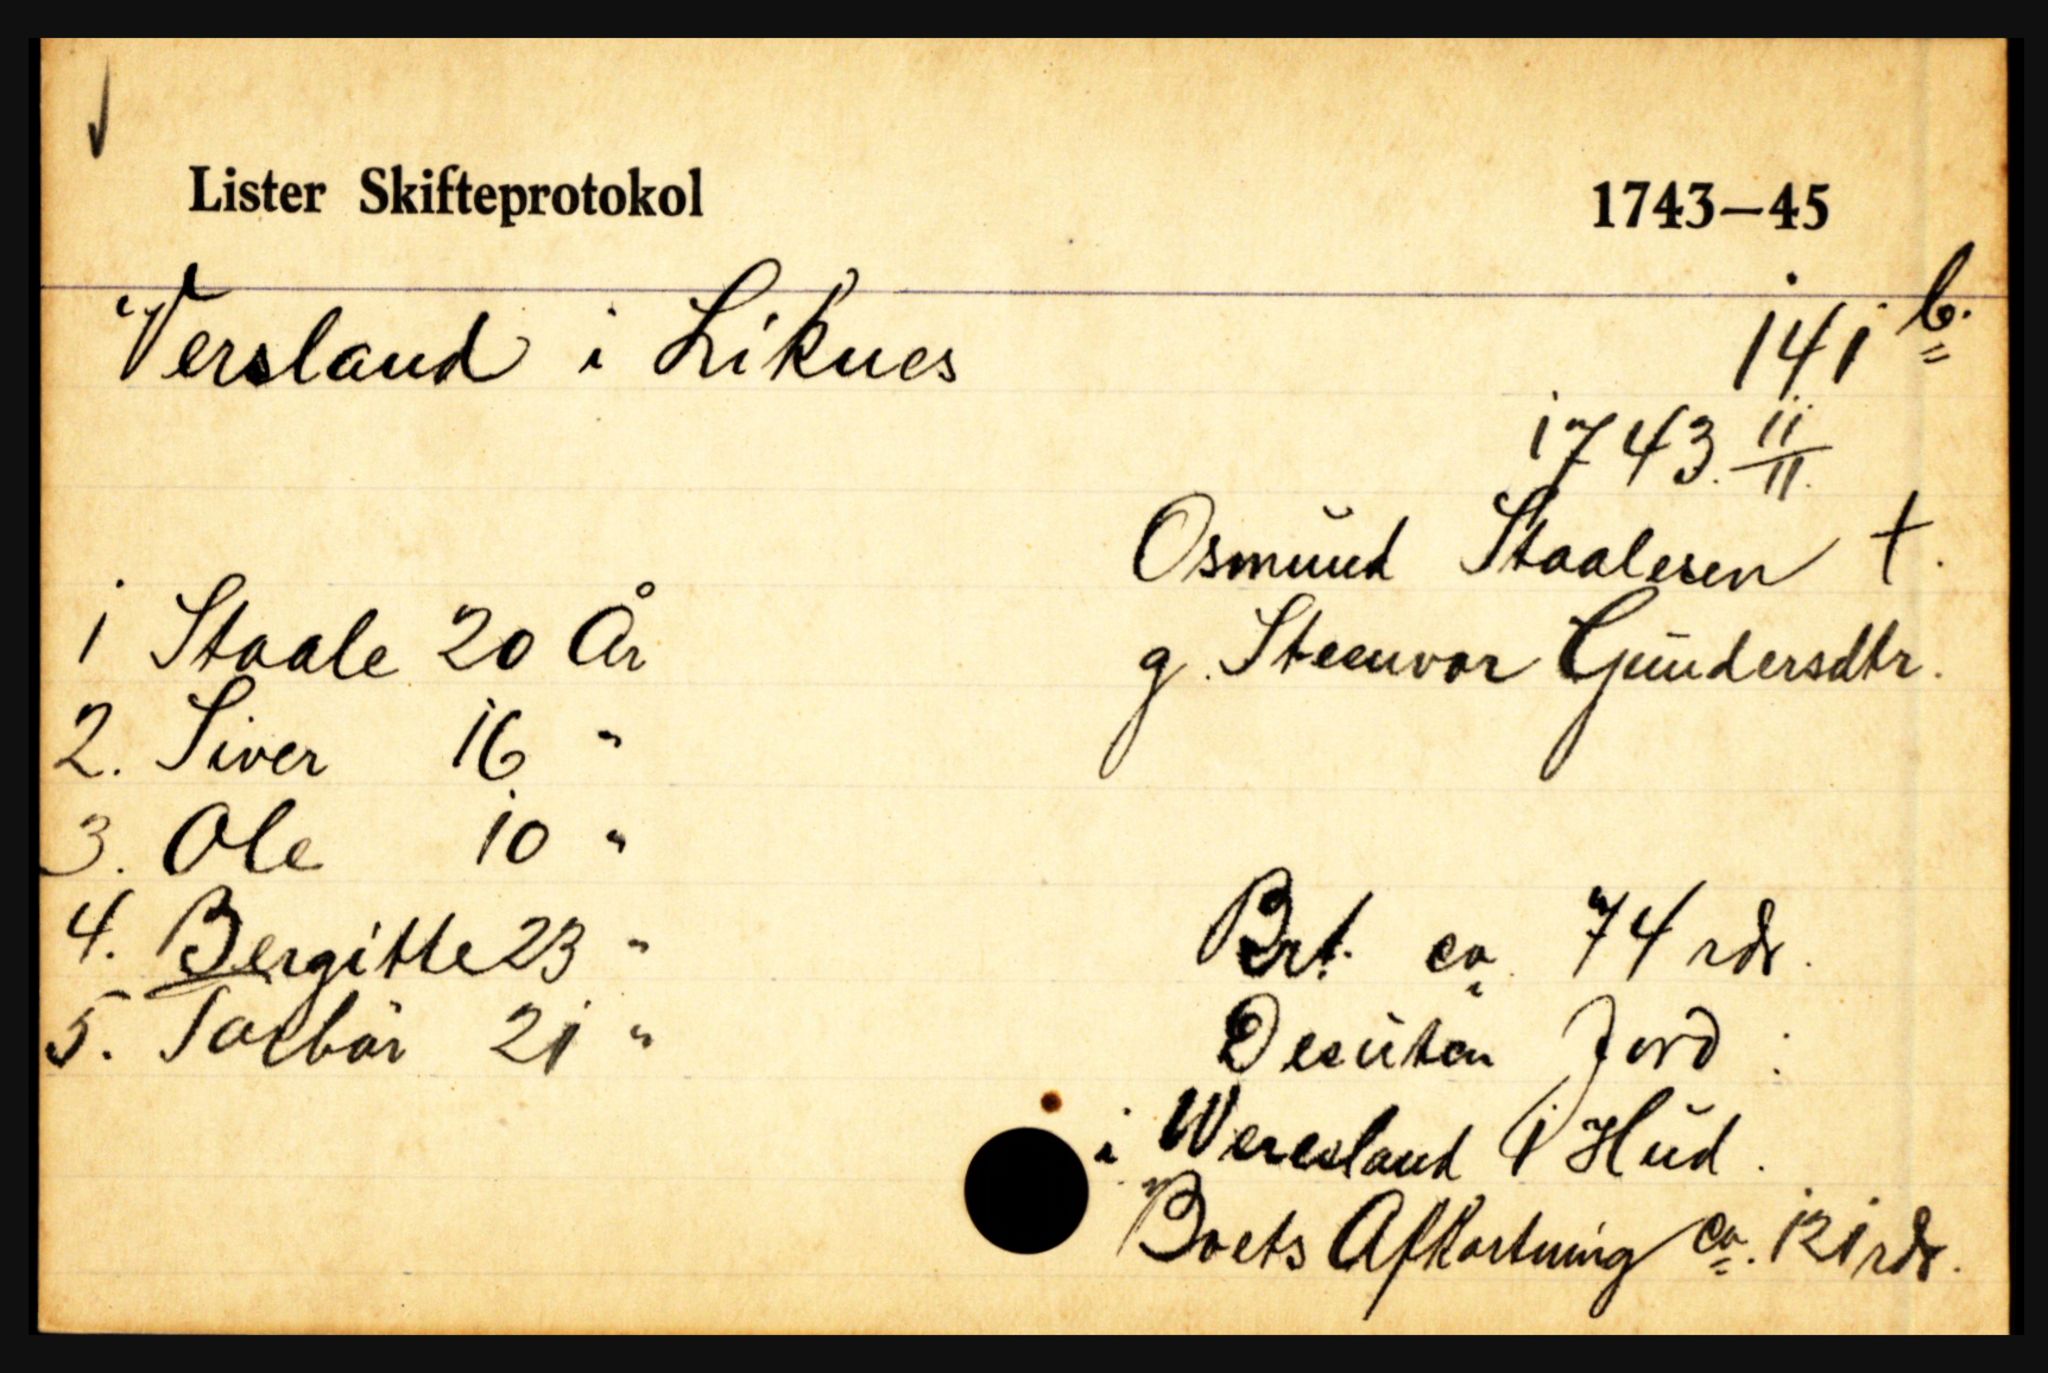 Lister Skifteprotokol 1743–45
Versland i Liknes 141 b.
1743. 11/11.
Osmund Staalesen †.
g. Steenvor Gundersdtr.
1 Staale 20 År
2. Siver 16 "
3. Ole 10 "
4. Bergitte 23 "
5. Torbår 21 "
Brt. ca. 74 rdr.
Desuten Jord :
i Weresland 1 Hud.
Boets Afkortning ca. 121 rdr.